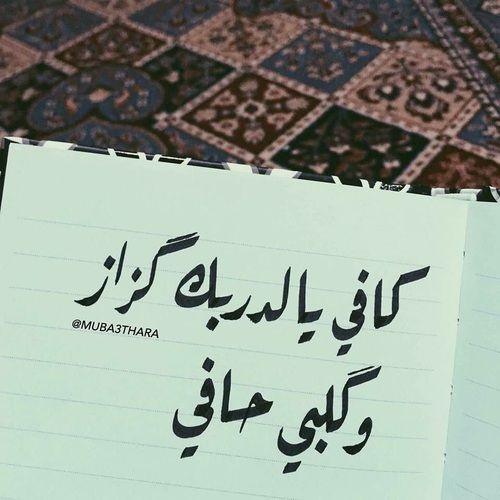 كافي يالدربك گزاز
@MUBA3THARA
وگلبي حافي